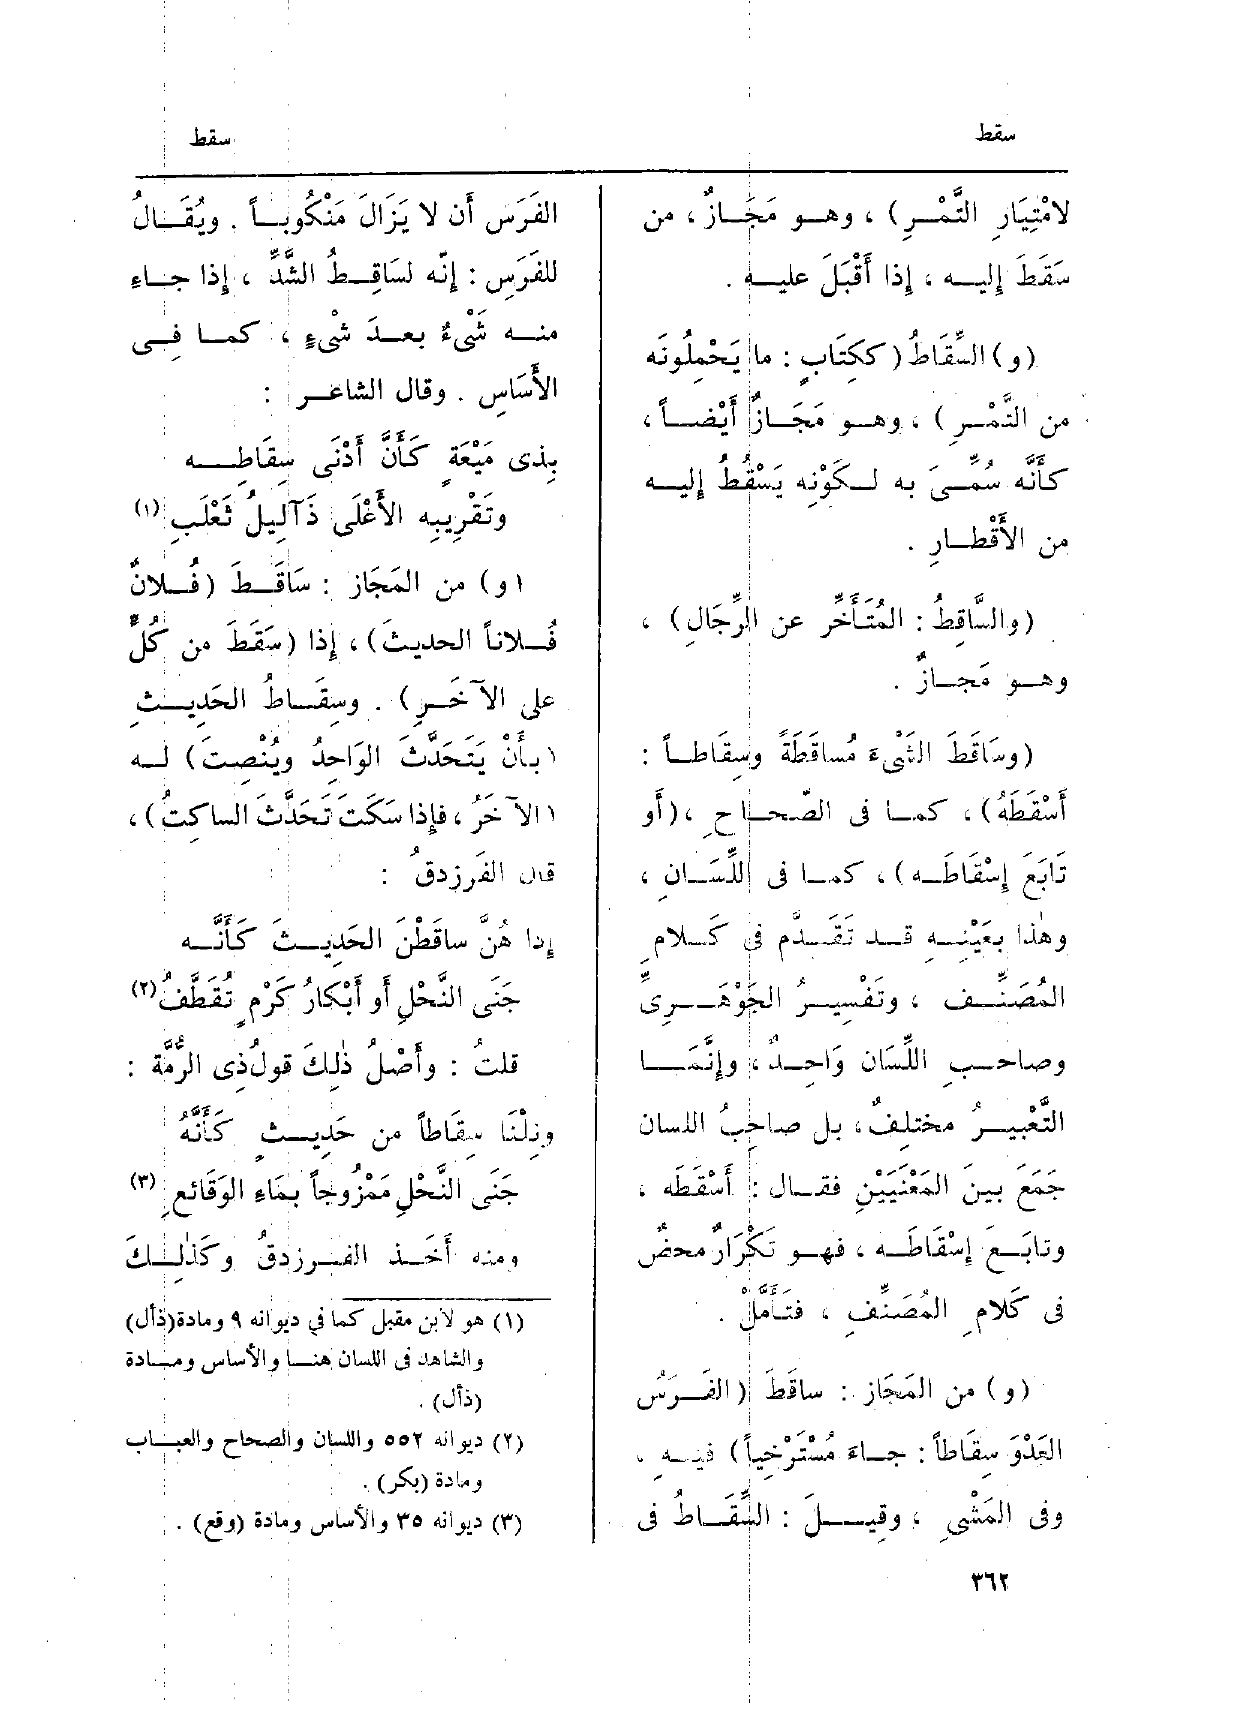 سقط
سقط
لامْتِيَارِ التَّمْـرِ) ، وهـو مَجَـازٌ ، من
سَقَطَ إليـه ، إذا أَقْبَلَ عليـه .
(و) السِّقَاطُ (ككِتَابٍ : ما يَحْمِلُونَه
من التَّمْـرِ) ، وهـو مَجَـازٌ أَيْضـاً ،
كأَنَّه سُمِّـىَ به لـكَوْنِه يَسْقُطُ إليـه
من الأَقْطـارِ .
(والسَّاقِطُ : المُتَأَخِّر عن الرِّجَالِ) ،
وهـو مَجـازٌ .
(وسَاقَطَ الشَّىْءَ مُساقَطَةً وسِقَاطـاً :
أَسْقَطَهُ) ، كمـا فى الصّحـاح ، (أَو
تَابَعَ إِسْقَاطَـه) ، كمـا فى اللِّسَـانِ ،
وهٰذا بعَيْنِـهِ قـد تَقَـدَّم فى كَـلامِ
المُصَنِّـف ، وتَفْسِيـرُ الجَوْهَـرِىِّ
وصاحـبِ اللِّسَان وَاحِـدٌ ، وإِنَّمَـا
التَّعْبِيـرُ مختلِفٌ ، بل صاحِبُ اللسان
جَمَعَ بينَ المَعْنَيَيْنِ فقـال : أَسْقَطَه ،
وتابَـعَ إِسْقَاطَـه ، فهـو تَكْرَارٌ محضٌ
فى كَلامِ المُصَنِّفِ ، فتَـأَمَّلْ .
(و) من المَجَاز : ساقَطَ (الفَـرَسُ
العَدْوَ سِقَاطاً : جـاءَ مُسْتَرْخِياً) فيـه ،
وفى المَشْىِ ، وقيـلَ : السِّقَـاطُ فى
الفَرَسِ أَن لا يَزَالَ مَنْكُوبـاً . ويُقَـالُ
للفَرَسِ : إِنّه لسَاقِـطُ الشَّدِّ ، إذا جـاءَ
منـه شَىْءٌ بعـدَ شَىْءٍ ، كمـا فـى
الأَسَاسِ . وقال الشاعـر :
بِذى مَيْعَةٍ كَأَنَّ أَدْنَى سِقَاطِـه
وتَقْرِيبِه الأَعْلَى ذَآلِيلُ ثَعْلَبِ (١)
(و) من المَجَاز : سَاقَـطَ (فُـلانٌ
فُـلاناً الحديثَ) ، إذا (سَقَطَ من كُلٍّ
على الآخَـرِ) . وسِقَـاطُ الحَدِيـثِ
(بـأَنْ يَتَحَدَّثَ الوَاحِدُ ويُنْصِتَ) لـه
(الآخَرُ ، فإذا سَكَتَ تَحَدَّثَ الساكتُ) ،
قال الفَرزدقُ :
إذا هُنَّ ساقَطْنَ الحَدِيـثَ كَأَنَّـه
جَنَى النَّحْلِ أَو أَبْكَارُ كَرْمٍ تُقَطَّفُ (٢)
قلتُ : وأَصْلُ ذٰلِكَ قولُ ذى الرُّمَّة :
ونِلْنَا سِقَاطاً من حَدِيـثٍ كَأَنَّهُ
جَنَى النَّحْلِ مَمْزُوجاً بمَاءِ الوَقَائعِ (٣)
ومنه أَخَـذ الفَـرزدقُ وكَذٰلِـكَ
(١) هو لابن مقبل كما في ديوانه ٩ ومادة (ذأل)
والشاهد فى اللسان هنـا والأساس ومـادة
(ذأل) .
(٢) ديوانه ٥٥٢ واللسان والصحاح والعبـاب
ومادة (بكر) .
(٣) ديوانه ٣٥ والأساس ومادة (وقع) .
٣٦٢